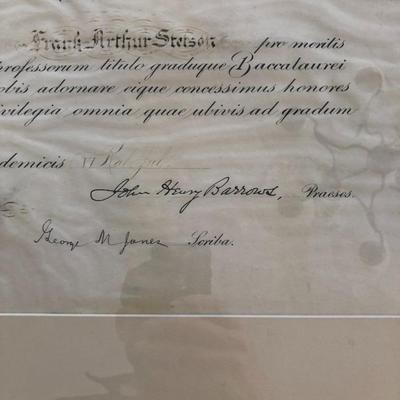 Frank Arthur Stetson pro meritis
professorum titulo graduque Baccalaurei
obis adornare eique concessimus honores
ivilegia omnia quae ubivis ad gradum
demicis VI Kal
John Henry Barrows, Praeses.
George M Jones Scriba.